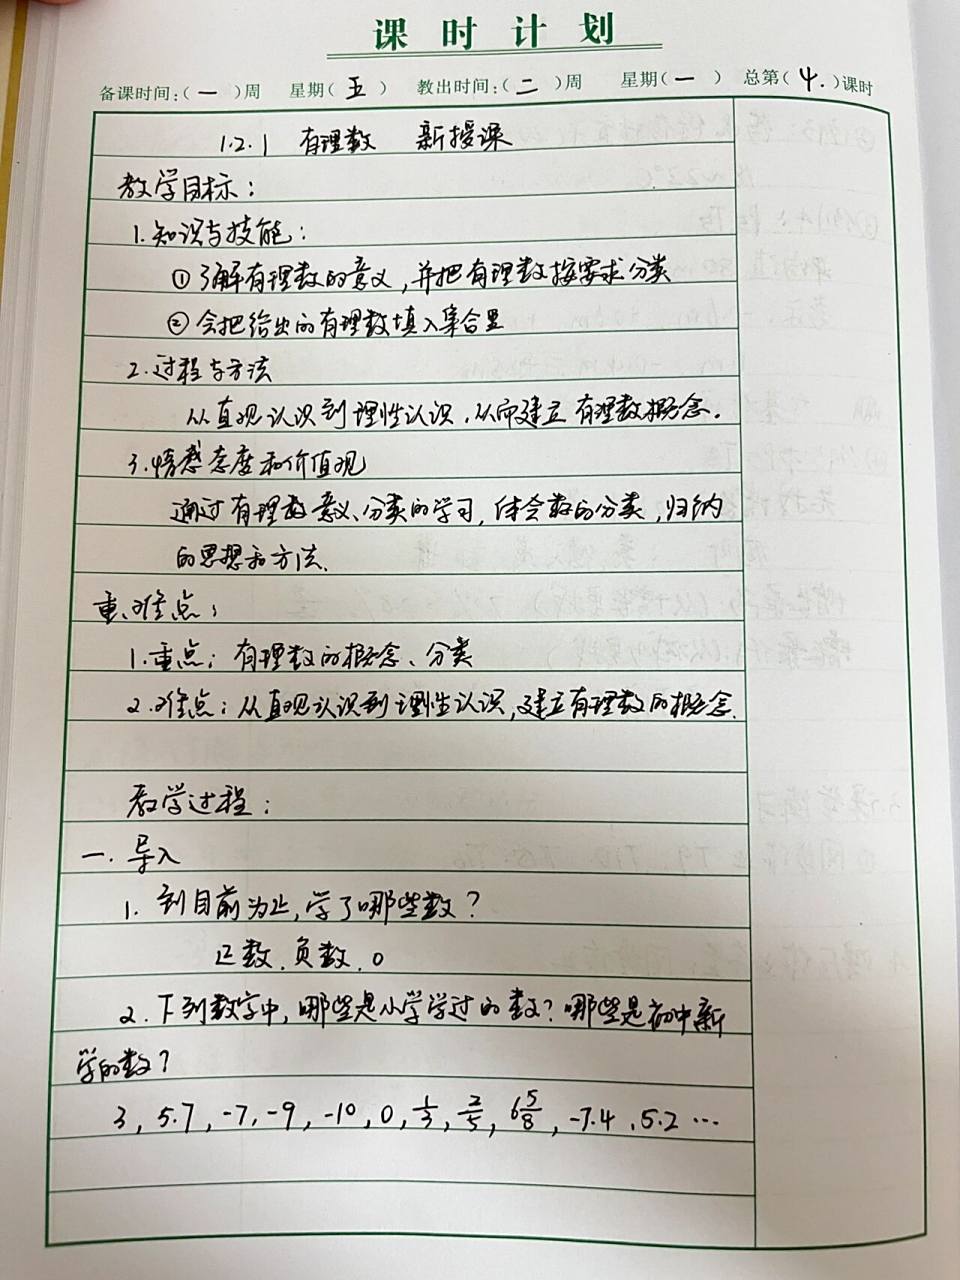 课时计划
备课时间:(一)周 星期(五) 教出时间:(二)周 星期(一) 总第(4.)课时
1.2.1 有理数 新授课
教学目标:
1.知识与技能:
①了解有理数的意义,并把有理数按要求分类
②会把给出的有理数填入集合里
2.过程与方法
从直观认识到理性认识,从而建立有理数概念.
3.情感态度和价值观
通过有理数意义、分类的学习,体会数的分类,归纳
的思想和方法.
重、难点:
1.重点:有理数的概念、分类
2.难点:从直观认识到理性认识,建立有理数的概念.
教学过程:
一.导入
1.到目前为止,学了哪些数?
正数.负数.0
2.下列数字中,哪些是小学学过的数?哪些是初中新
学的数?
3, 5.7, -7, -9, -10, 0, 1/3, 2/5, 6 5/8, -7.4, 5.2 …